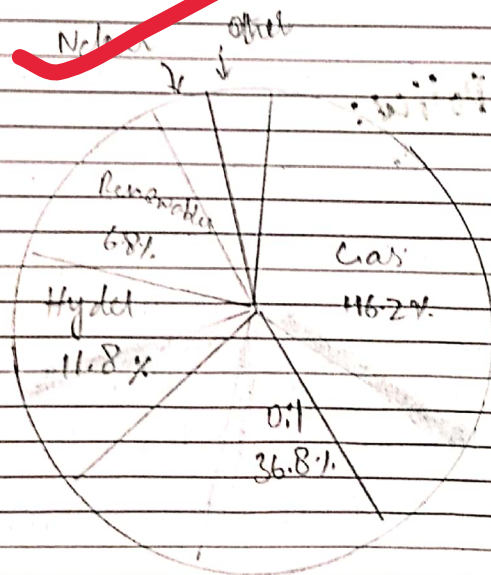 Other
Renewable
6.8%
Gas
46.2%
Hydel
11.8%
Oil
36.8%